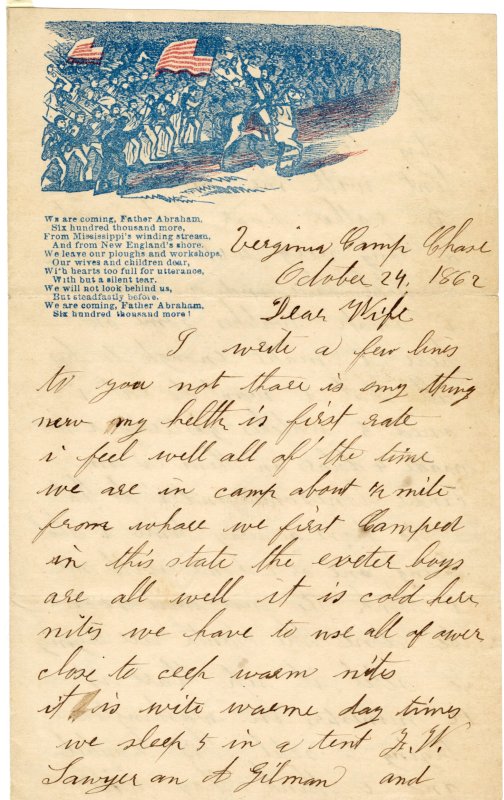 We are coming, Father Abraham,
Six hundred thousand more,
From Mississippi's winding stream,
And from New England's shore.
We leave our ploughs and workshops,
Our wives and children dear,
With hearts too full for utterance,
With but a silent tear.
We will not look behind us,
But steadfastly before.
We are coming, Father Abraham,
Six hundred thousand more!
Verginia Camp Chase
October 24, 1862
Dear Wife
I write a few lines
to you not thare is eny thing
new my helth is first rate
i feel well all of the time
we are in camp about ½ mile
from whare we first Camped
in this state the exeter boys
are all well it is cold here
nites we have to use all of ower
close to ceep warm nites
it is wite warme day times
we sleep 5 in a tent
Sawyer an A Gilman and